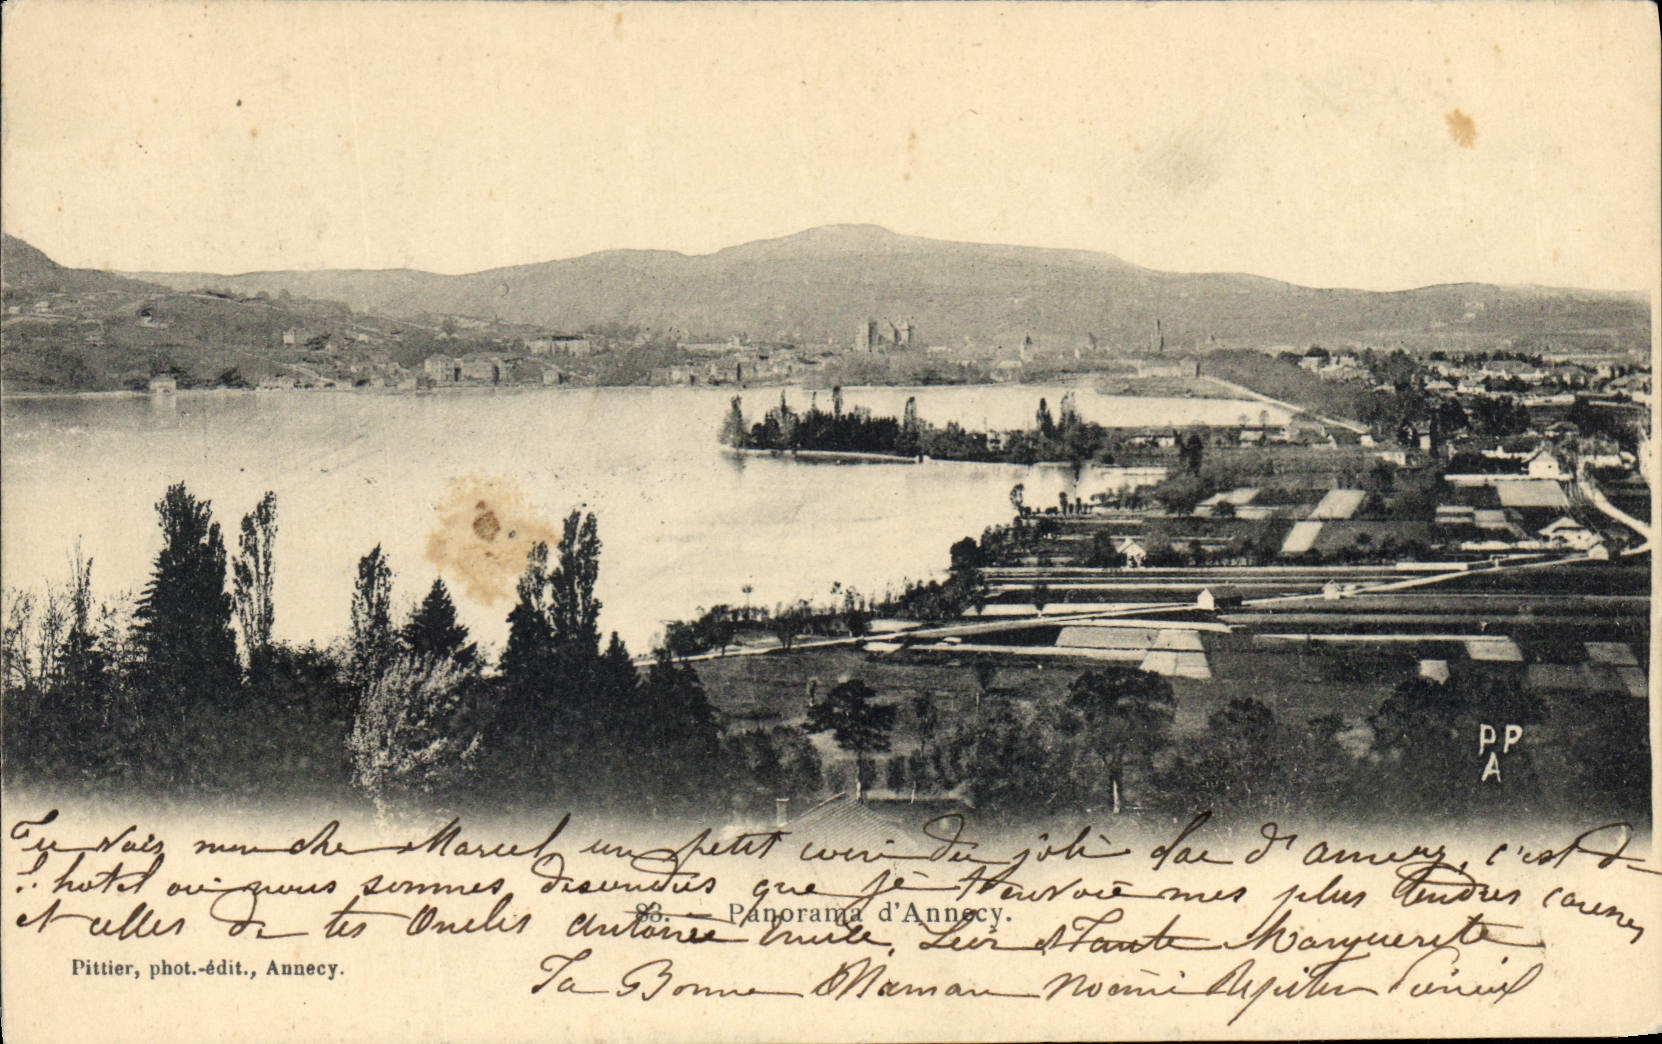 PP
A
Tu vois mon cher Marcel un petit coin du joli lac d'annecy, c'est de
l'hotel où nous sommes descendus que je t'envoie mes plus tendres caresses
et celles de tes Oncles antoine Emile, Léon et Tante Marguerite
83. — Panorama d'Annecy.
Pittier, phot.-édit., Annecy.
Ta Bonne Maman Noémi